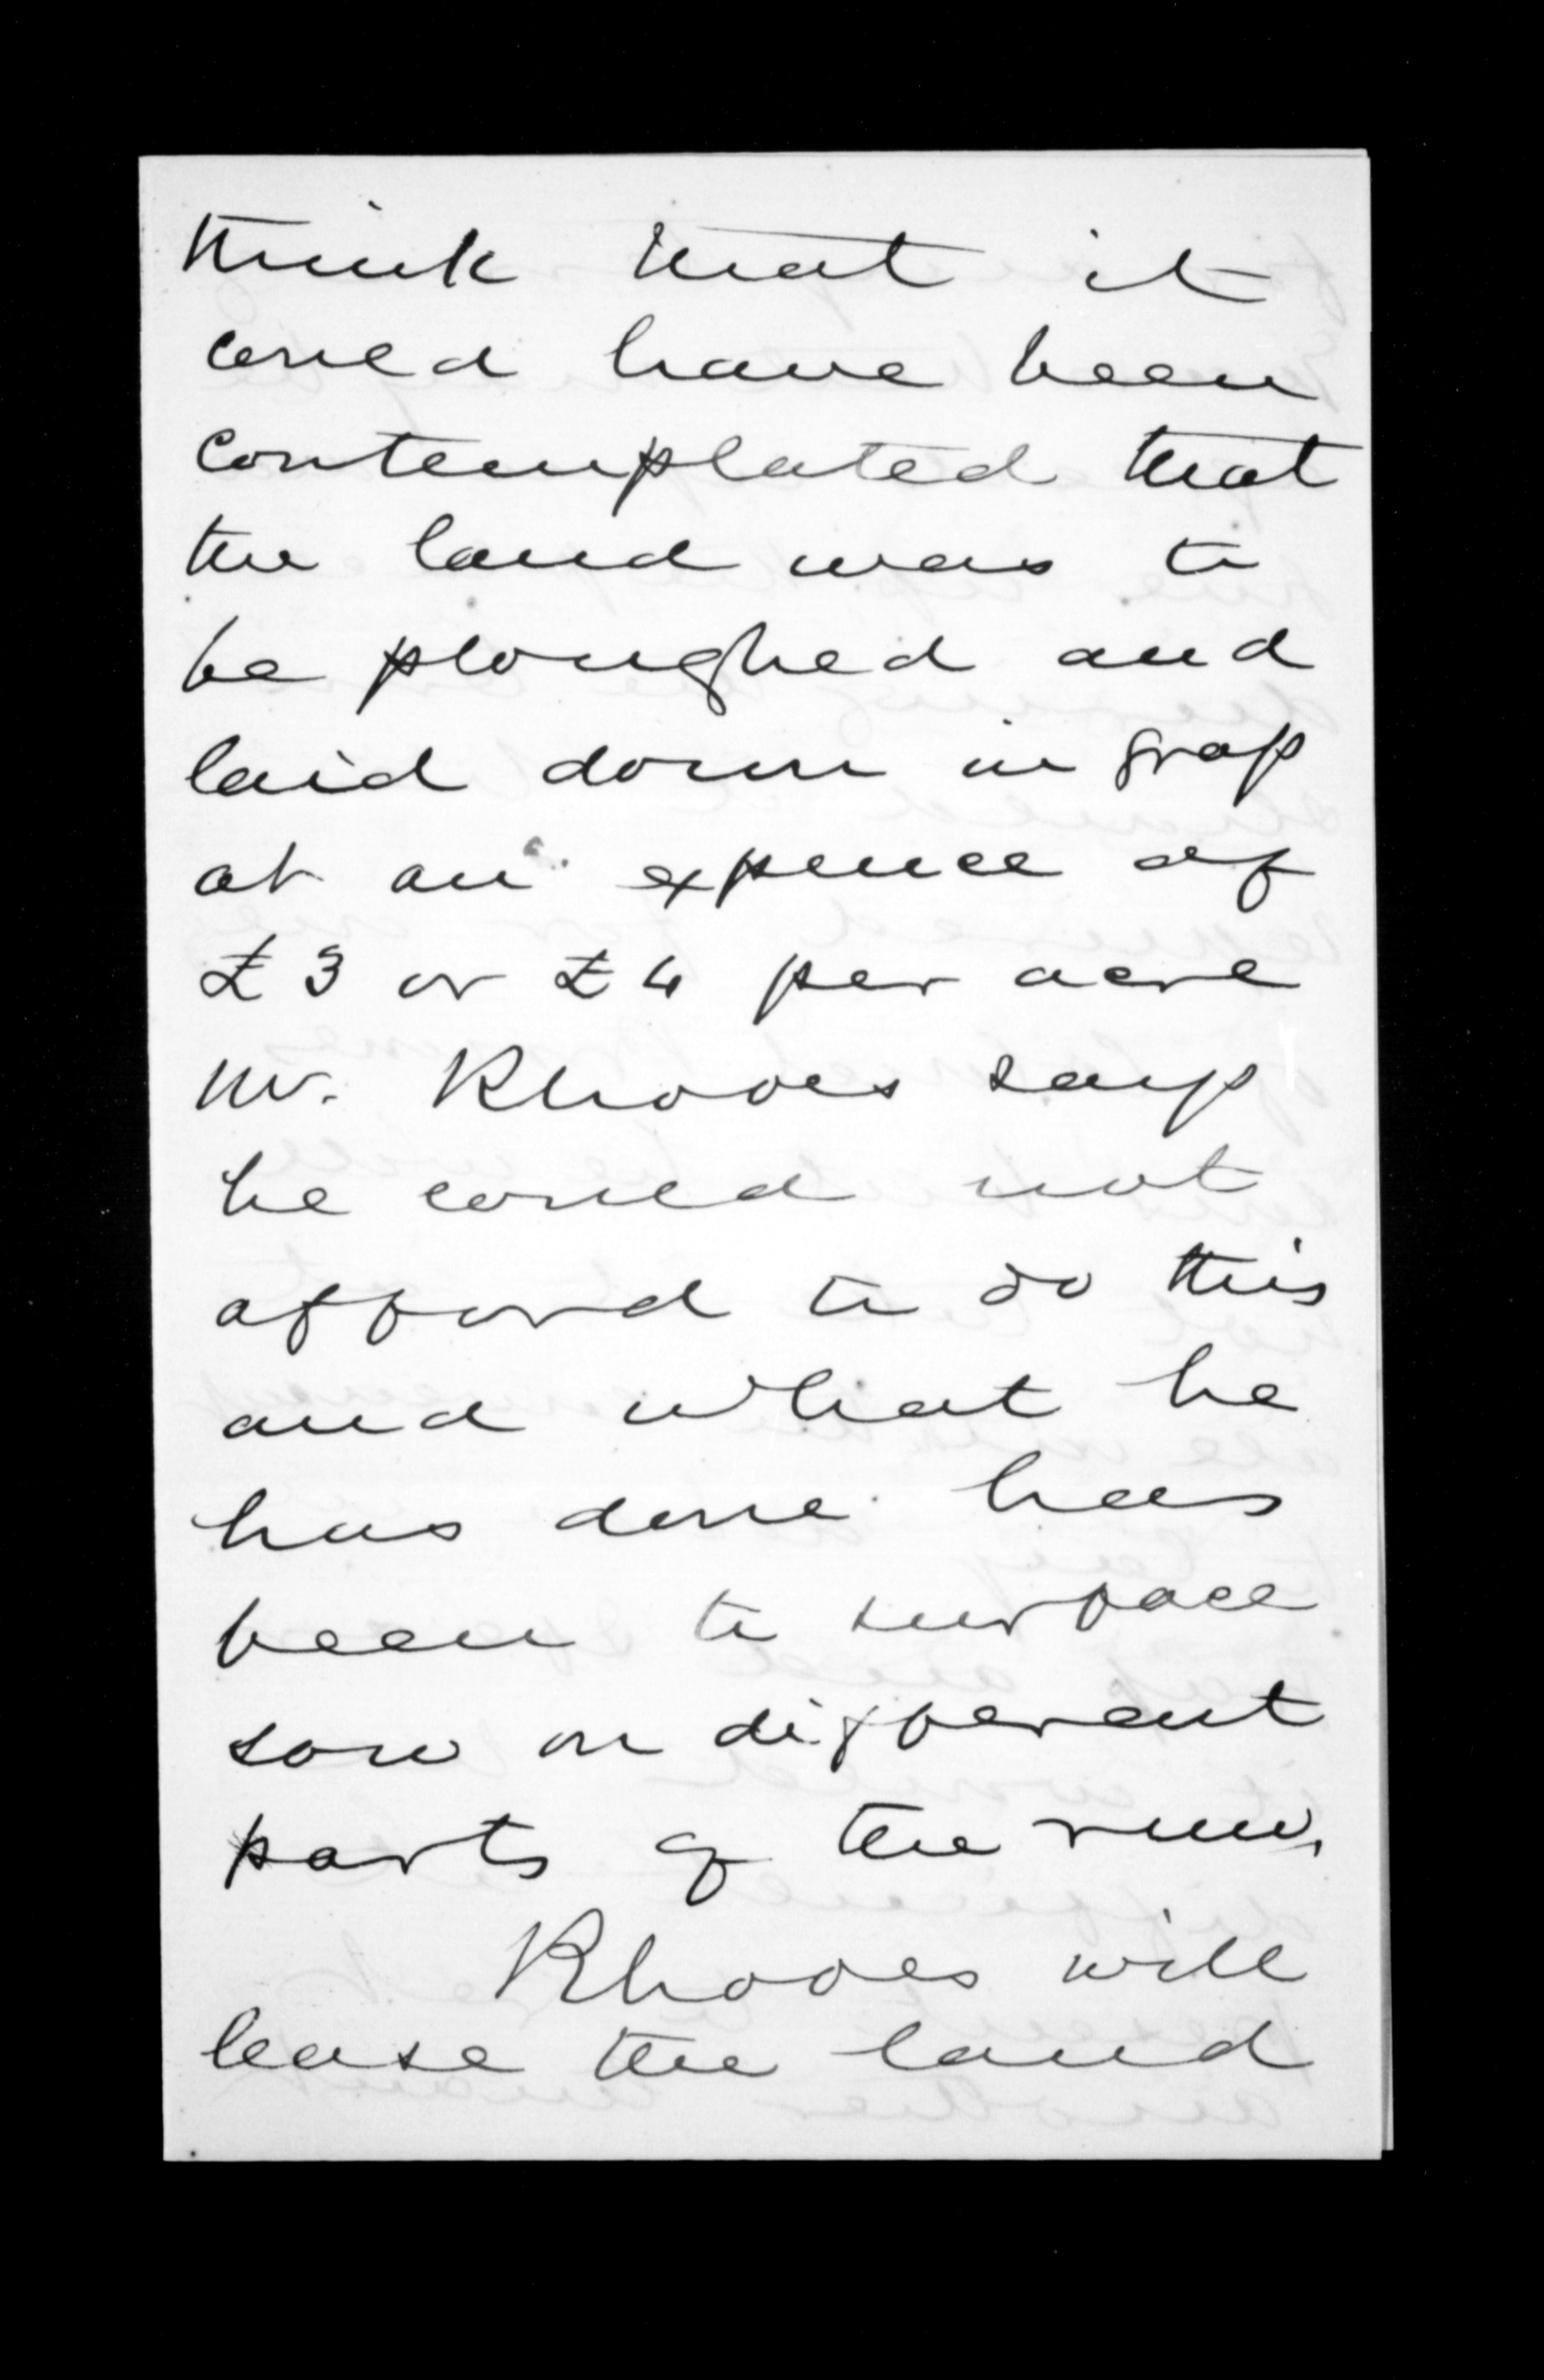 think that it
could have been
contemplated that
the land was to
be ploughed and
laid down in grass
at an expence of
£3 or £4 per acre
Mr. Rhodes says
he could not
afford to do this
and what he
has done has
been to surface
sow on different
parts of the run,
Rhodes will
lease the land